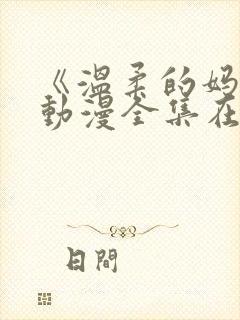 《温柔的妈
动漫全集在
日間